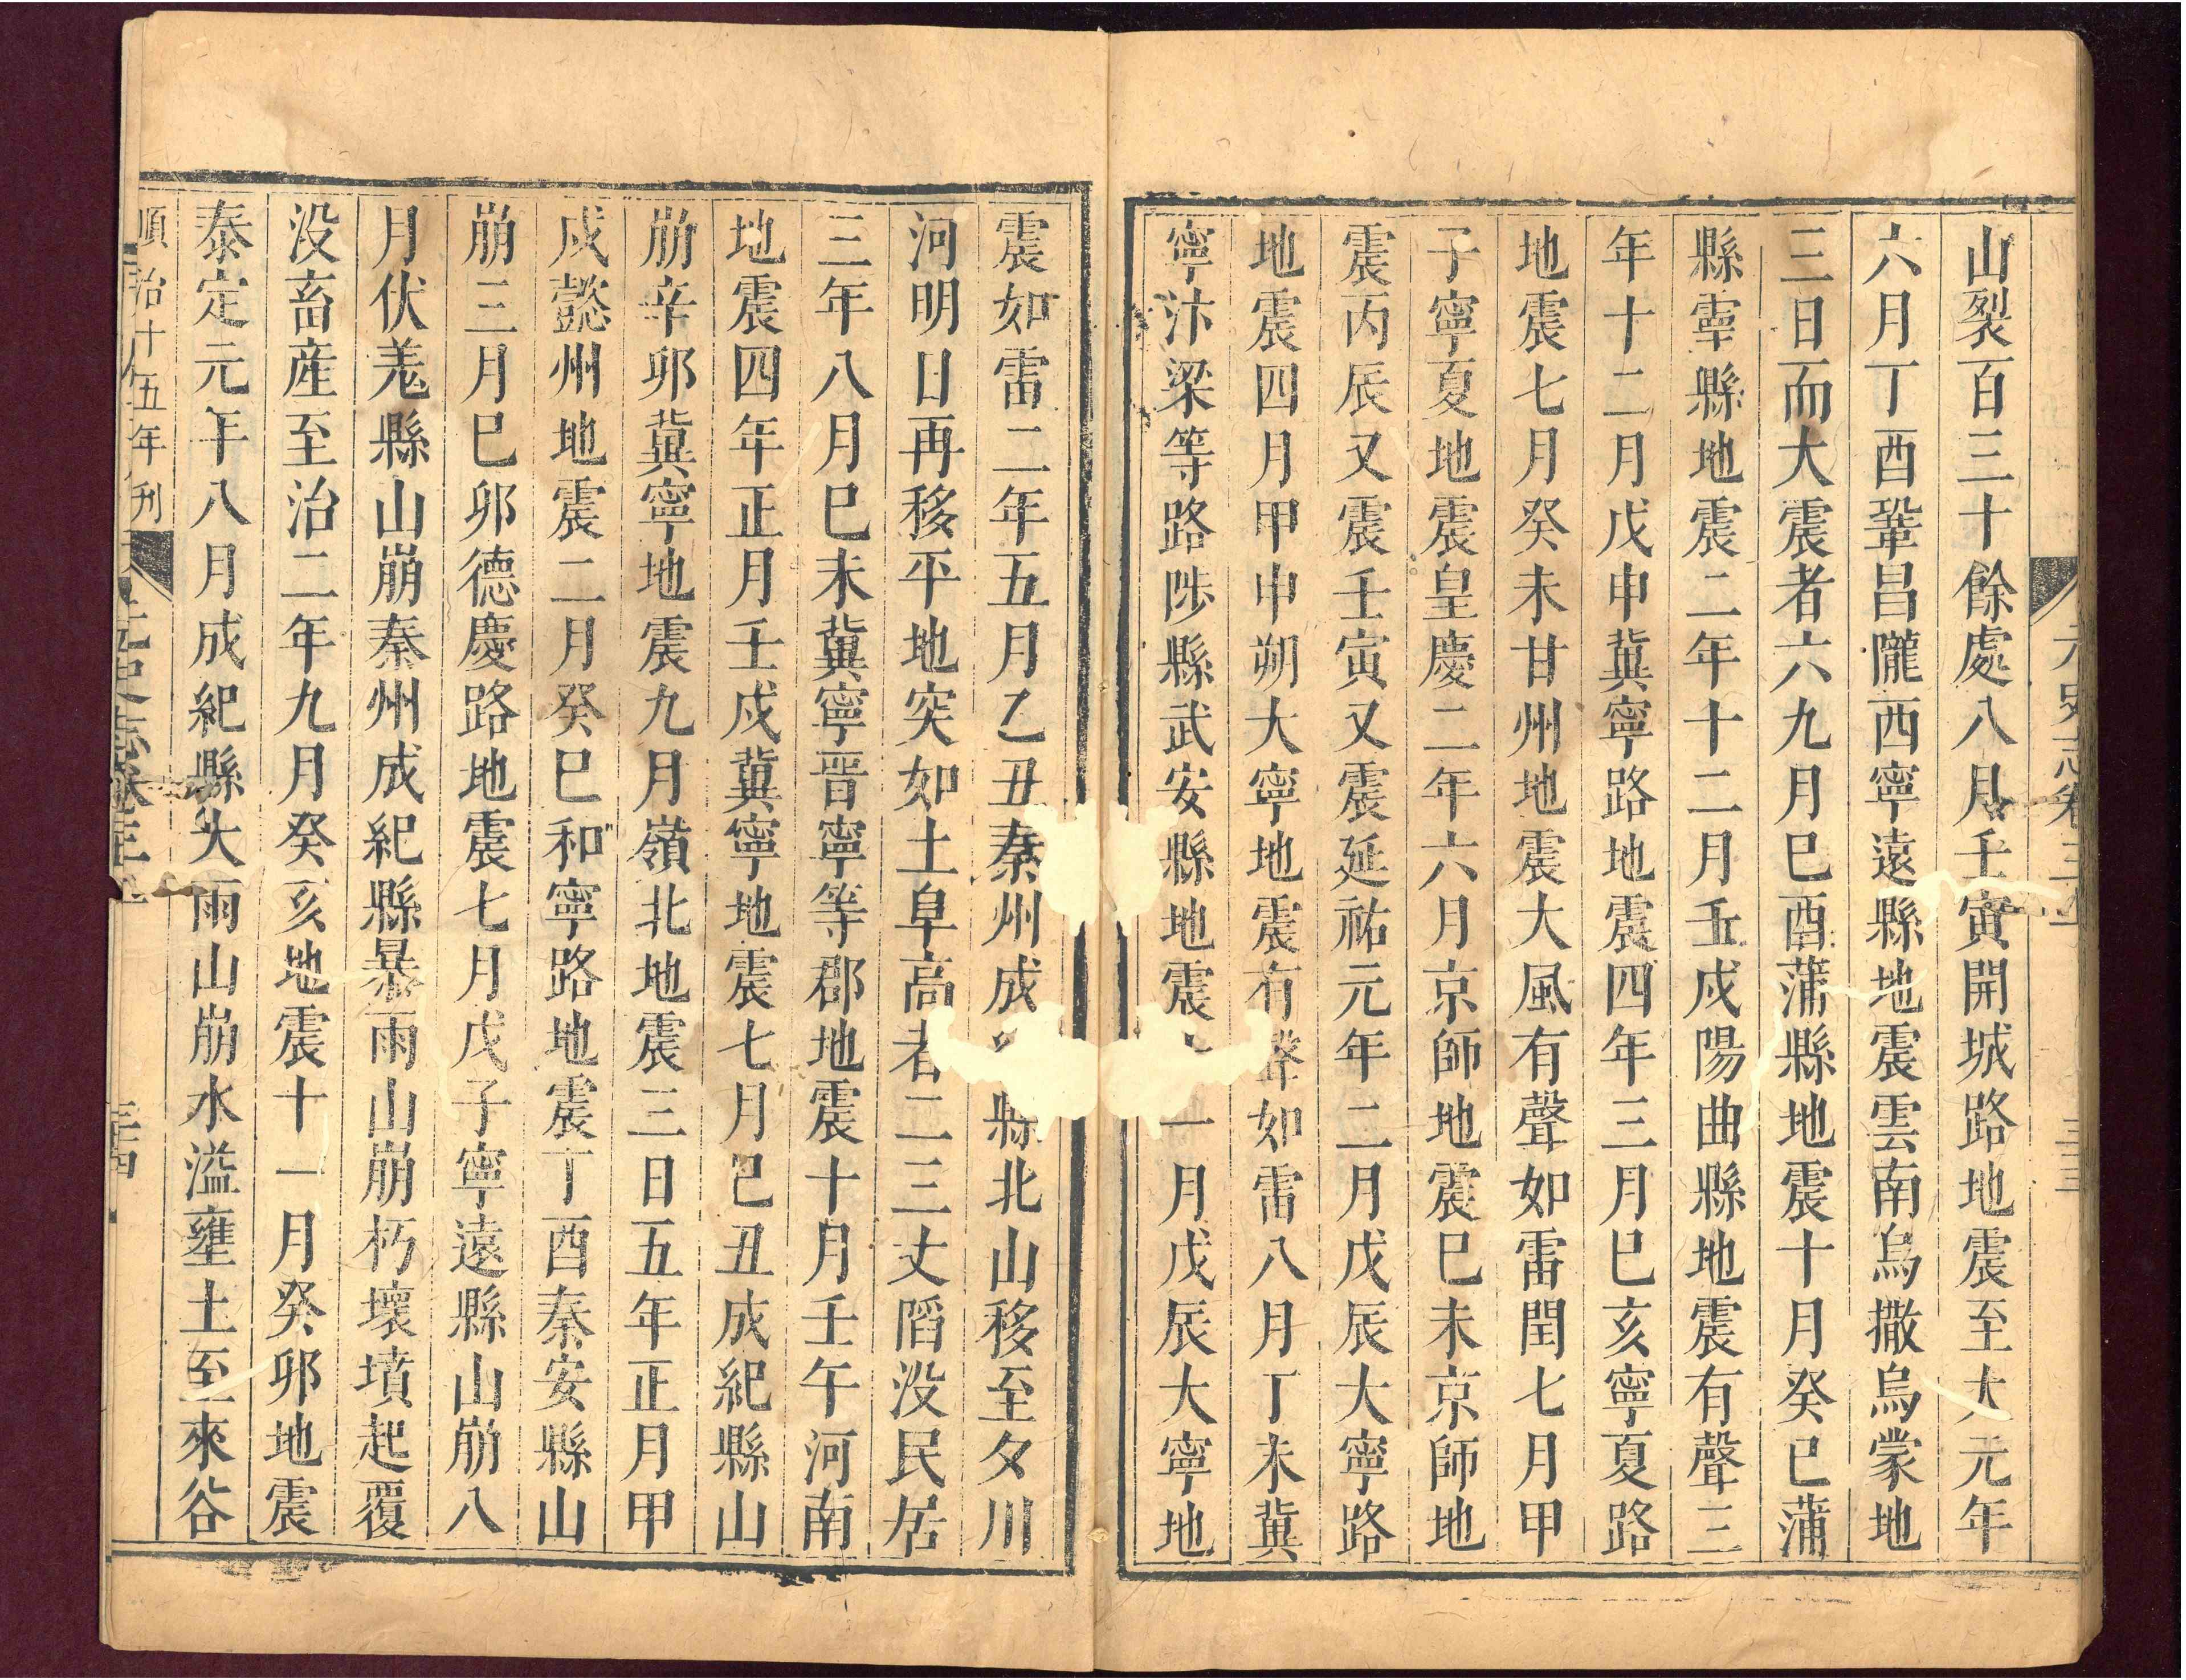 元史志卷三上 三三
山裂百三十餘處八月壬寅開城路地震至大元年
六月丁酉鞏昌隴西寧遠縣地震雲南烏撒烏蒙地
三日而大震者六九月巳酉蒲縣地震十月癸巳蒲
縣䨏縣地震二年十二月壬戍陽曲縣地震有聲三
年十二月戊申冀寧路地震四年三月巳亥寧夏路
地震七月癸未甘州地震大風有聲如雷閏七月甲
子寧夏地震皇慶二年六月京師地震巳未京師地
震丙辰又震壬寅又震延祐元年二月戊辰大寧路
地震四月甲申朔大寧地震有聲如雷八月丁未冀
寧汴梁等路陟縣武安縣地震一月戊辰大寧地
震如雷二年五月乙丑秦州成縣北山移至夕川
河明日再移平地突如土阜高者二三丈陷没民居
三年八月巳未冀寧晋寧等郡地震十月壬午河南
地震四年正月壬戍冀寧地震七月巳丑成紀縣山
崩辛卯冀寧地震九月嶺北地震三日五年正月甲
戍懿州地震二月癸巳和寧路地震丁酉秦安縣山
崩三月巳卯德慶路地震七月戊子寧遠縣山崩八
月伏羗縣山崩秦州成紀縣暴雨山崩朽壞墳起覆
没畜產至治二年九月癸亥地震十一月癸卯地震
泰定元年八月成紀縣大雨山崩水溢壅土至來谷
順治十五年刋